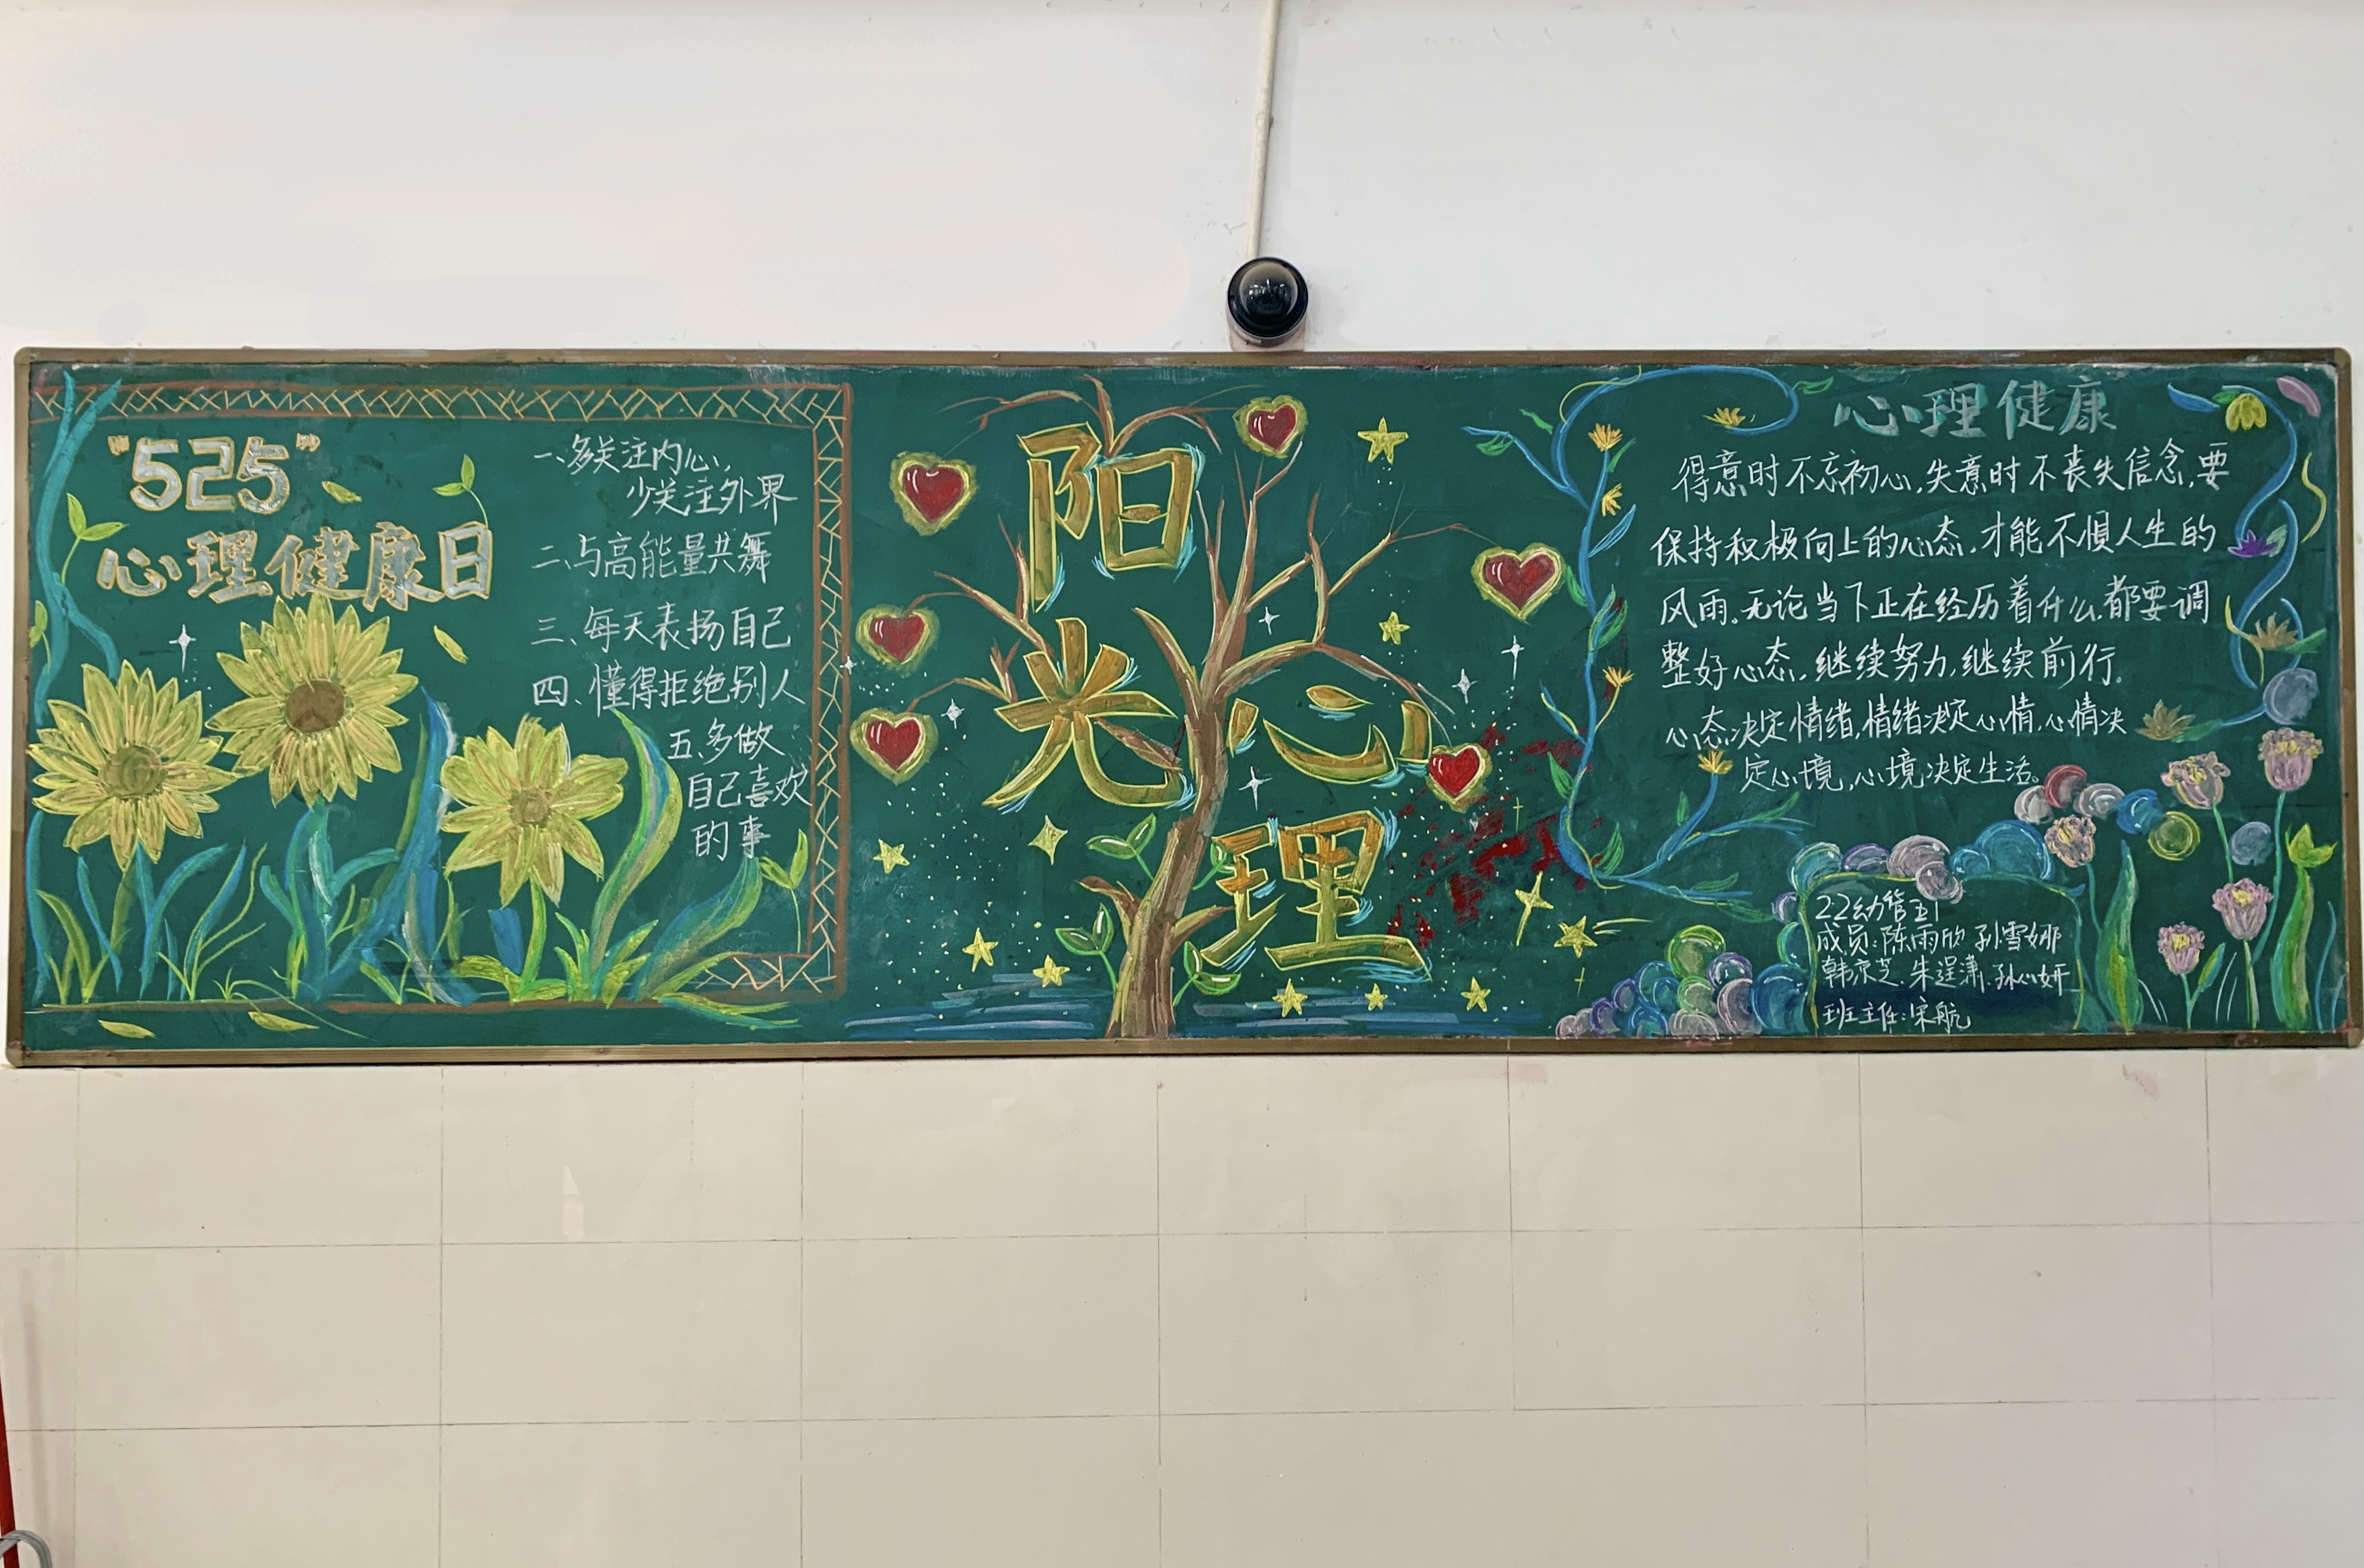 “525”
心理健康日
一、多关注内心,
少关注外界
二、与高能量共舞
三、每天表扬自己
四、懂得拒绝别人
五、多做
自己喜欢
的事
阳
光心
理
心理健康
得意时不忘初心,失意时不丧失信念,要
保持积极向上的心态,才能不惧人生的
风雨。无论当下正在经历着什么,都要调
整好心态,继续努力,继续前行。
心态决定情绪,情绪决定心情,心情决
定心境,心境决定生活。
22幼管五1
成员:陈雨欣 孙雪娜
韩京芝、朱逞潇、孙心妍
班主任:宋航